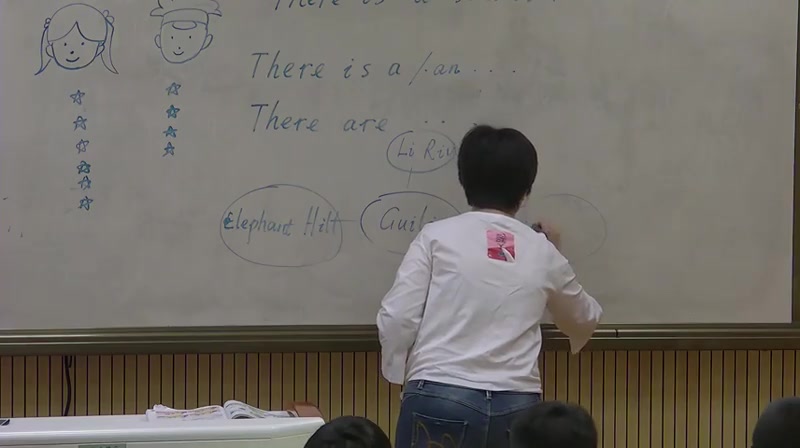 There is a
There is a /. an ...
There are ...
Li Riv
Elephant Hill
Guili